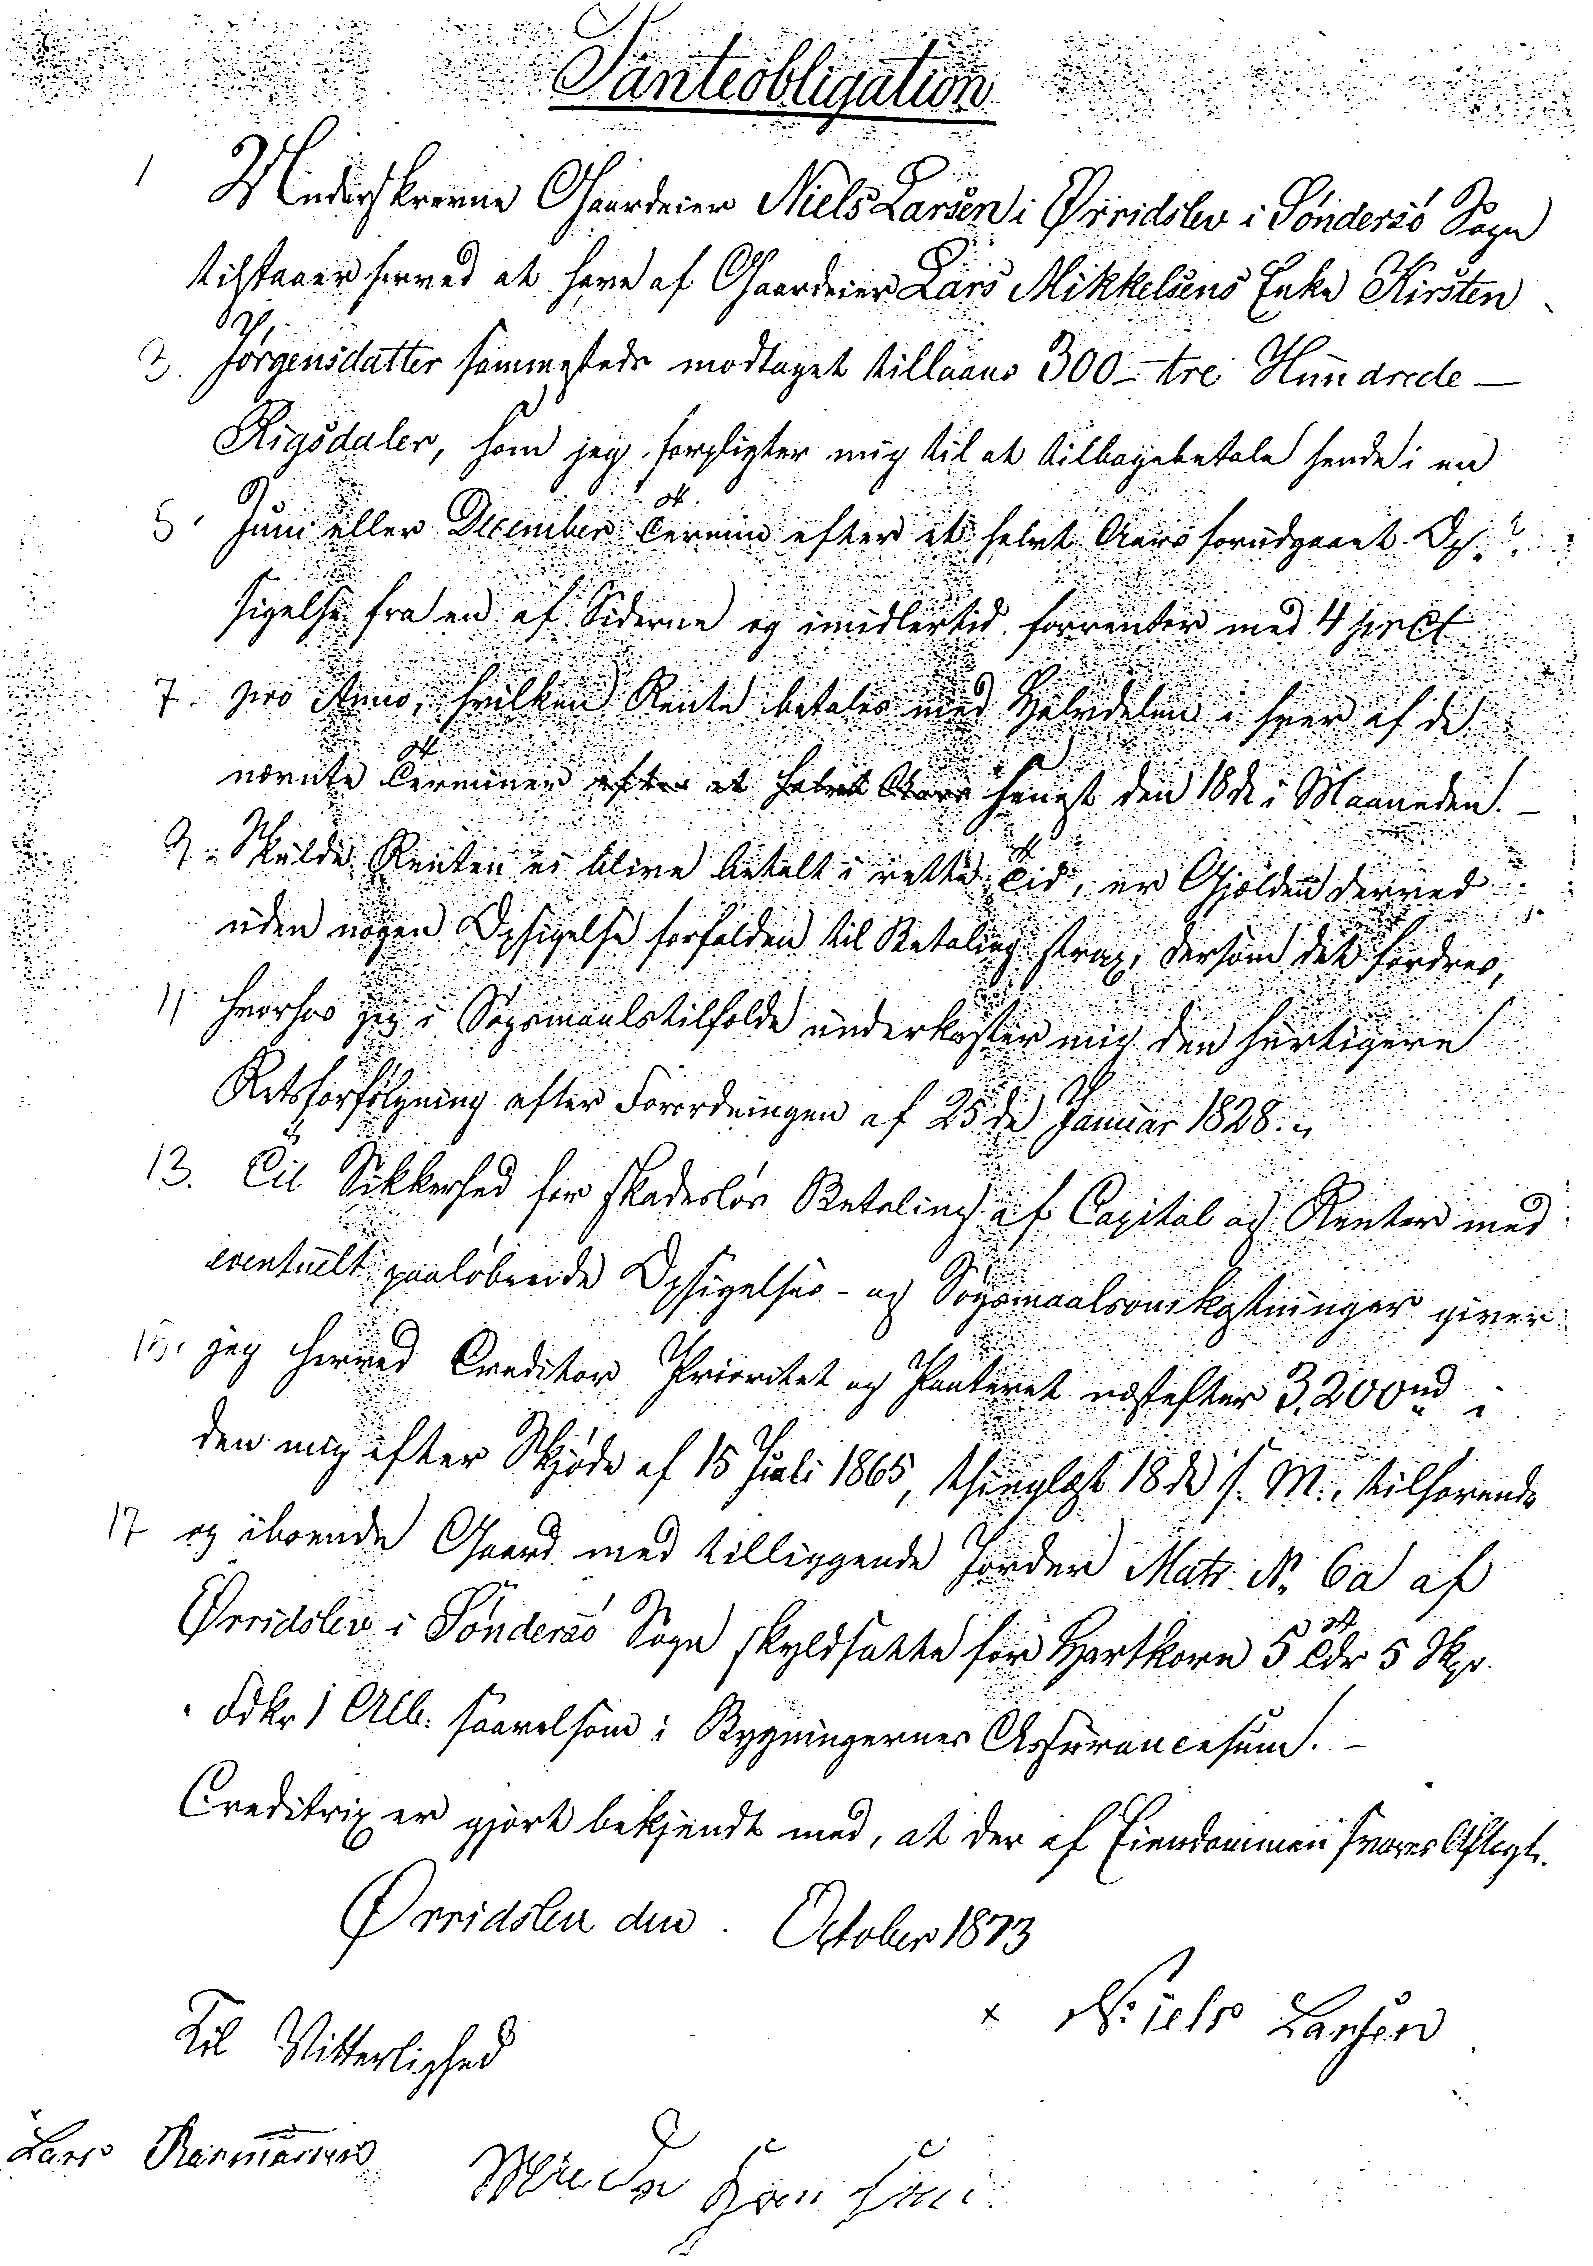 Panteobligation
1 Underskrevne Gaardeier Niels Larsen i Ørridslev i Söndersö Sogn
tilstaaer herved at have af Gaardeier Lars Mikkelsens Enke Kirsten
3. Jörgensdatter sammesteds modtaget tillaans 300 – tre Hundrede –
Rigsdaler, som jeg forpligter mig til at tilbagebetale hende i en
5. Juni eller December Termin efter et halvt Aars forudgaaet Op-
sigelse fra en af Siderne og imidlertid forrenter med 4 prCt
7. pro Anno, hvilken Rente betales med Halvdelen i hver af de
nævnte Terminer efter et halvt Aars senest den 18de i Maaneden. –
9. Skulde Renten ei blive betalt i rette Tid, er Gjælden derved
uden nogen Opsigelse forfalden til Betaling strax, dersom det fordres,
11 hvorhos jeg i Søgsmaalstilfælde underkaster mig den hurtigere
Retsforfölgning efter Forordningen af 25de Januar 1828.
13. Til Sikkerhed for skadeslös Betaling af Capital og Renter med
eventuelt paalöbende Opsigelses- og Sögsmaalsomkostninger giver
15. jeg herved Creditor Prioritet og Panteret næstefter 3,200 rd i
den mig efter Skjöde af 15 Juli 1865, thinglæst 18de s. M., tilhørende
17 og iboende Gaard med tilliggende Jorder Matr. No. 6a af
Ørridslev i Söndersö Sogn skyldsatte for Hartkorn 5 Tdr 5 Skp.
" Fdkr 1 Alb. saavelsom i Bygningernes Assurancesum. –
Creditrix er gjort bekjendt med, at der af Eiendommen svares Aftægt.
Ørridslev den . October 1873
x Niels Larsen
Til Vitterlighed
Lars Rasmussen